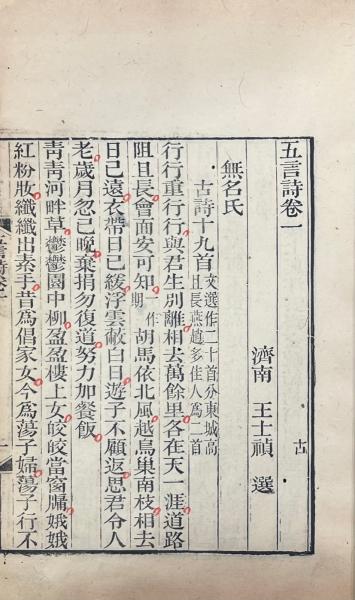 五言詩卷一
濟南　王士禎　選　古
無名氏
古詩十九首文選作二十首分東城高且長燕趙多佳人爲二首
行行重行行與君生別離相去萬餘里各在天一涯道路
阻且長會面安可知一作期胡馬依北風越鳥巢南枝相去
日已遠衣帶日已緩浮雲蔽白日遊子不顧返思君令人
老歲月忽已晚棄捐勿復道努力加餐飯
靑靑河畔草鬱鬱園中柳盈盈樓上女皎皎當窗牖娥娥
紅粉妝纖纖出素手昔爲倡家女今爲蕩子婦蕩子行不
五言詩卷一